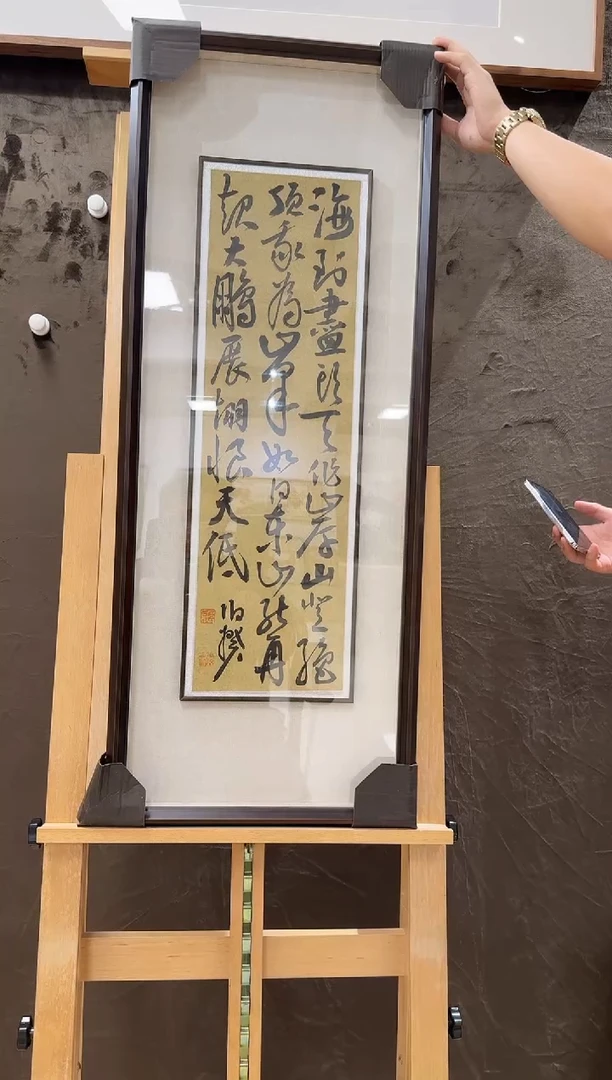 海到盡頭天作岸山登絕
頂我為峯如日東山能再
起大鵬展翅恨天低
伯